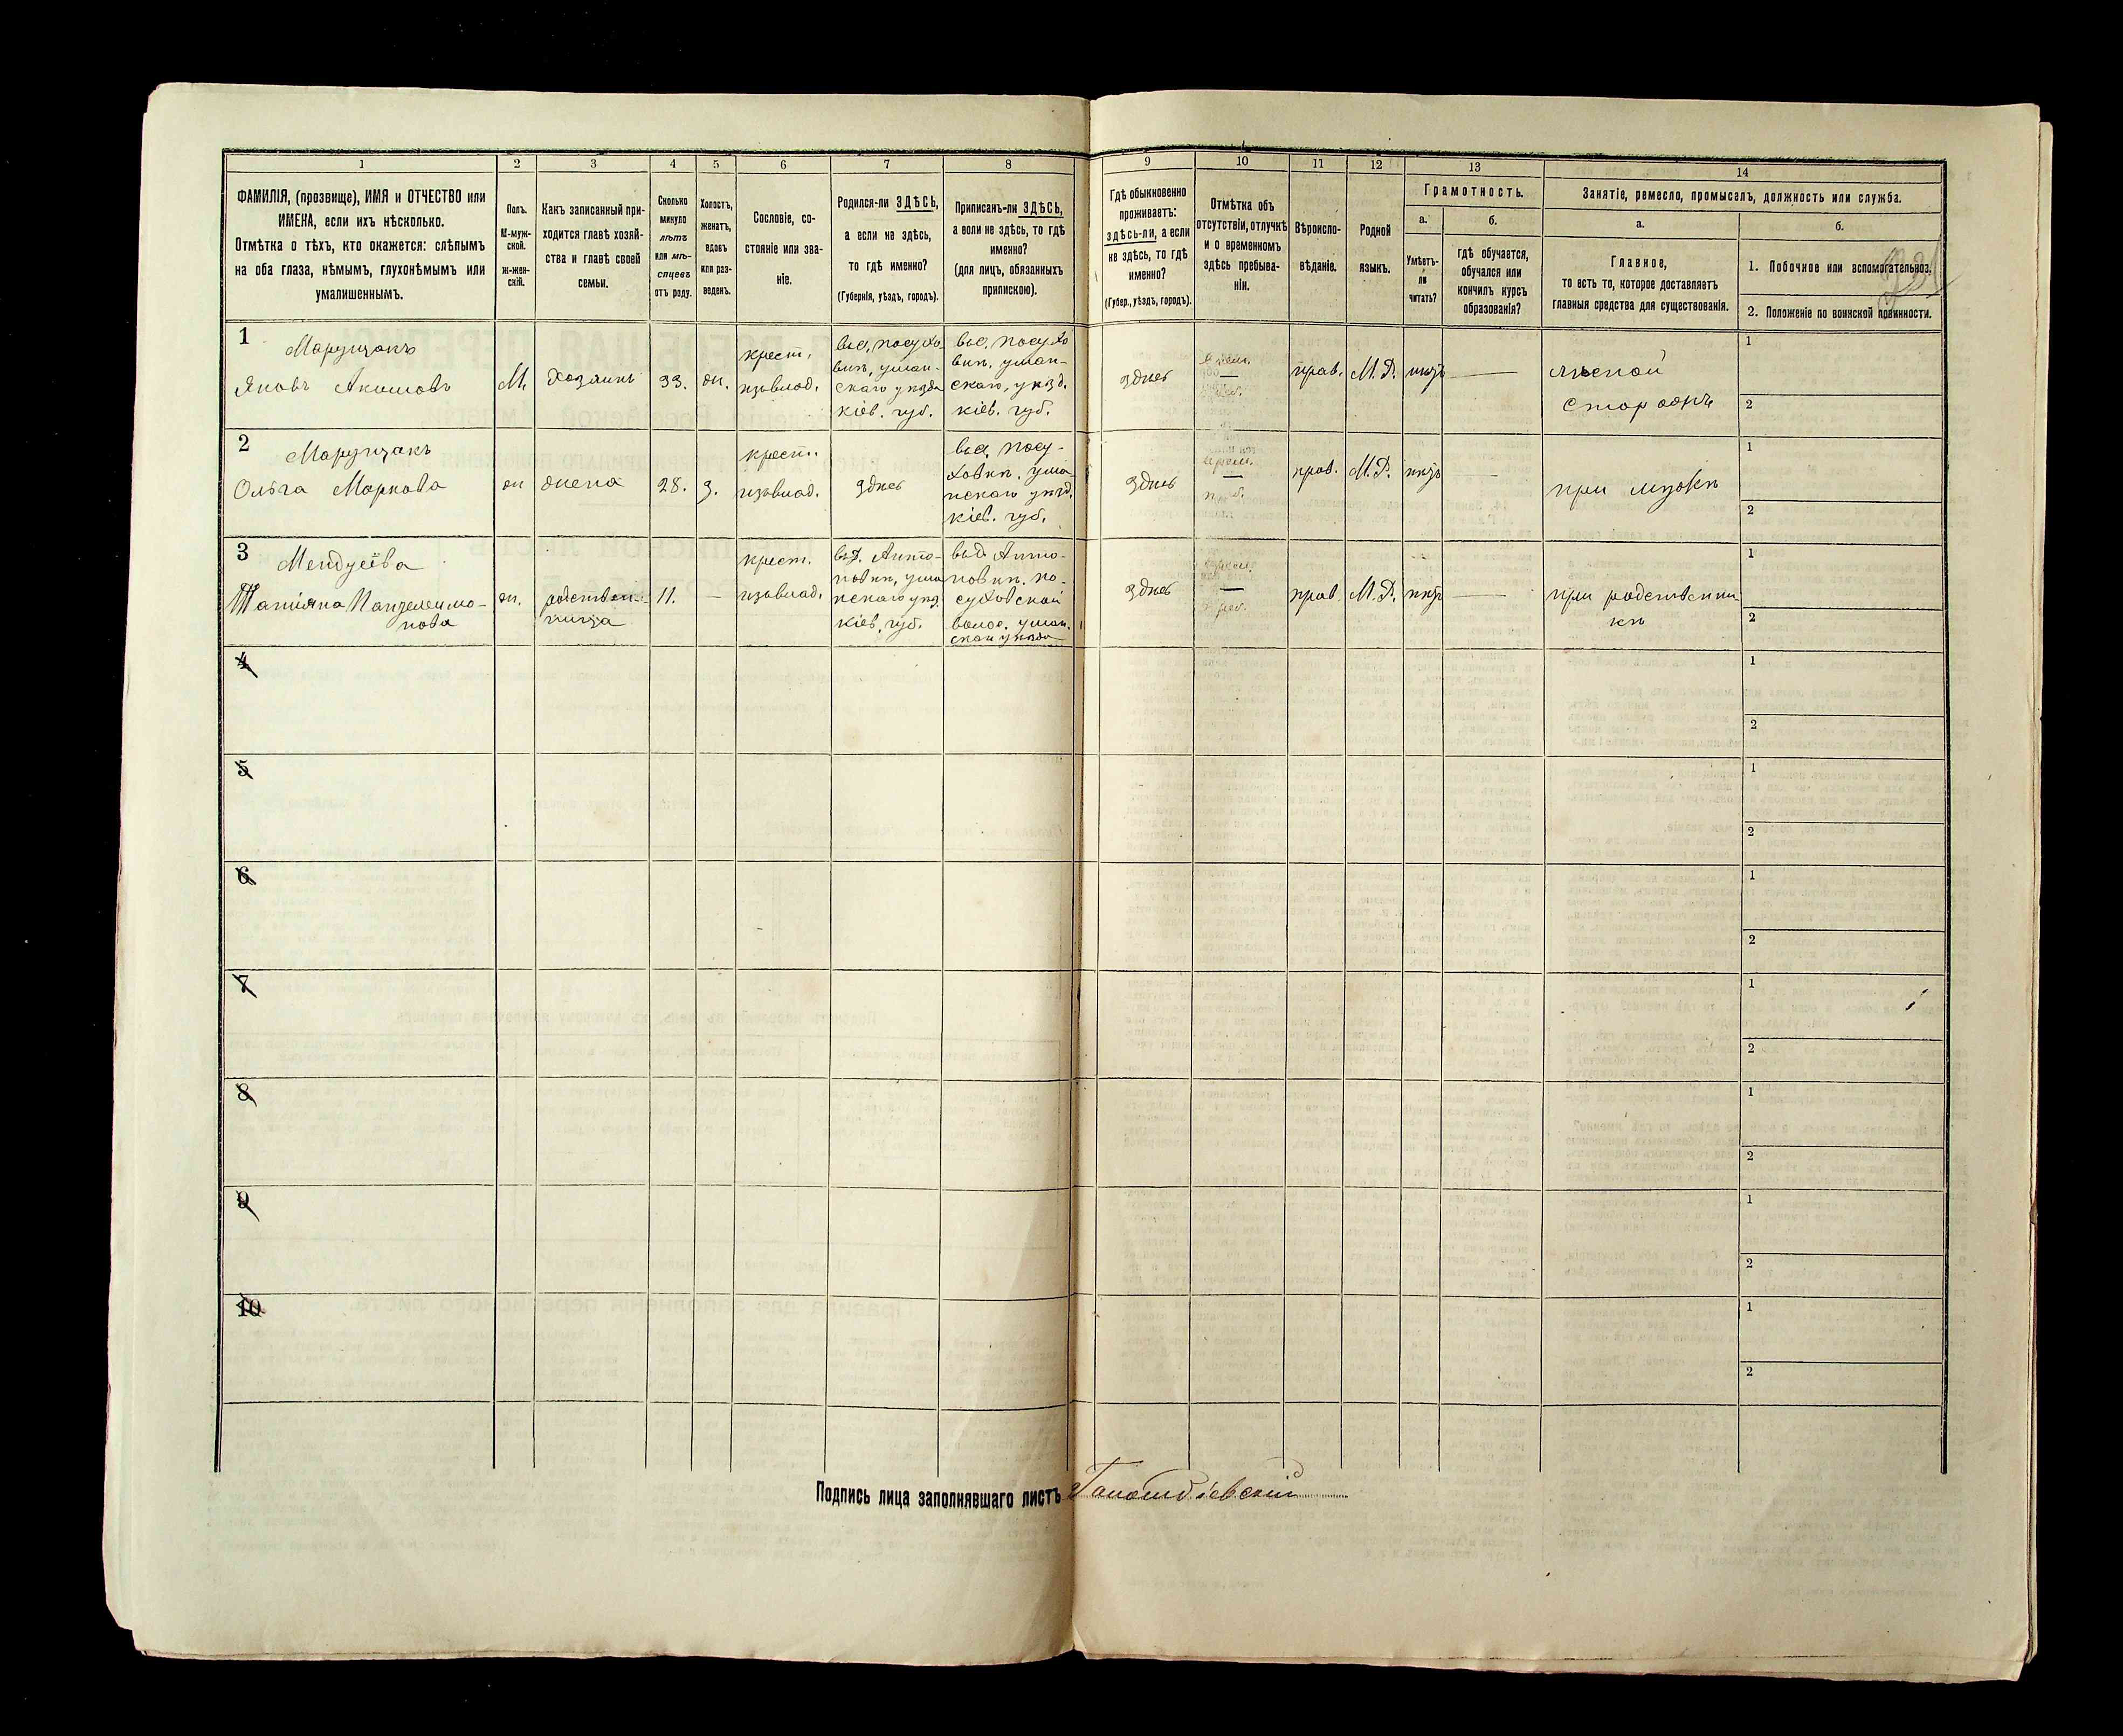 1 2 3 4 5 6 7 8 9 10 11 12 13 14
ФАМИЛІЯ, (прозвище), ИМЯ и ОТЧЕСТВО или
ИМЕНА, если ихъ нѣсколько.
Отмѣтка о тѣхъ, кто окажется: слѣпымъ
на оба глаза, нѣмымъ, глухонѣмымъ или
умалишеннымъ.
Полъ.
М-муж-
ской.
ж-жен-
скій.
Какъ записанный при-
ходится главѣ хозяй-
ства и главѣ своей
семьи.
Сколько
минуло
лѣтъ
или мѣ-
сяцевъ
отъ роду.
Холостъ,
женатъ,
вдовъ
или раз-
веденъ.
Сословіе, со-
стояніе или зва-
ніе.
Родился-ли ЗДѢСЬ,
а если не здѣсь,
то гдѣ именно?
(Губернія, уѣздъ, городъ).
Приписанъ-ли ЗДѢСЬ,
а если не здѣсь, то гдѣ
именно?
(для лицъ, обязанныхъ
припискою).
Гдѣ обыкновенно
проживаетъ:
здѣсь-ли, а если
не здѣсь, то гдѣ
именно?
(Губер., уѣздъ, городъ).
Отмѣтка объ
отсутствіи, отлучкѣ
и о временномъ
здѣсь пребыва-
ніи.
Вѣроиспо-
вѣданіе.
Родной
языкъ.
Грамотность.
а.
Умѣетъ-
ли
читать?
б.
гдѣ обучается,
обучался или
кончилъ курсъ
образованія?
Занятіе, ремесло, промыселъ, должность или служба.
а.
Главное,
то есть то, которое доставляетъ
главныя средства для существованія.
б.
1. Побочное или вспомогательное.
2. Положеніе по воинской повинности.
1
Марущакъ
Яковъ Акимовъ
М.
Хозяинъ
33.
ж.
крест.
изъ влад.
въ с. Посухо-
вкѣ, уман-
скаго уѣзда
кіев. губ.
въ с. Посухо
вкѣ, уман-
скаго, уѣзд.
кіев. губ.
здѣсь
—
прав.
М.Р.
нѣтъ
—
лѣсной
сторожъ
1
2
2
Марущакъ
Ольга Маркова
ж
жена
28.
з.
крест.
изъ влад.
здѣсь
въ с. Посу-
ховкѣ, ума
нскаго уѣзд.
кіев. губ.
здѣсь
—
прав.
М.Р.
нѣтъ
—
при мужѣ
1
2
3
Татіяна Пантелеимо-
нова
ж.
родствен-
ница
11.
—
крест.
изъ влад.
въ д. Анто-
новкѣ, ума
нскаго уѣзд.
кіев. губ.
въ д. Анто-
новкѣ. по-
суховской
волос. уман.
скаго уѣзда
здѣсь
—
прав.
М.Р.
нѣтъ
—
при родственни
кѣ
1
2
4
1
2
5
1
2
6
1
2
7
1
2
8
1
2
9
1
2
10
1
2
Подпись лица заполнявшаго листъ